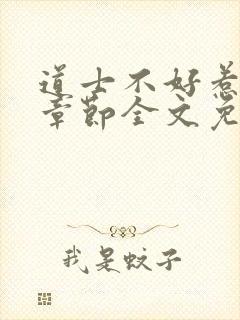 道士不好惹
章节全文免
我是蚊子